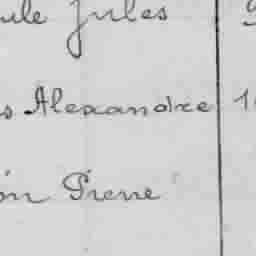 ule Jules
s Alexandre 1
on Pierre